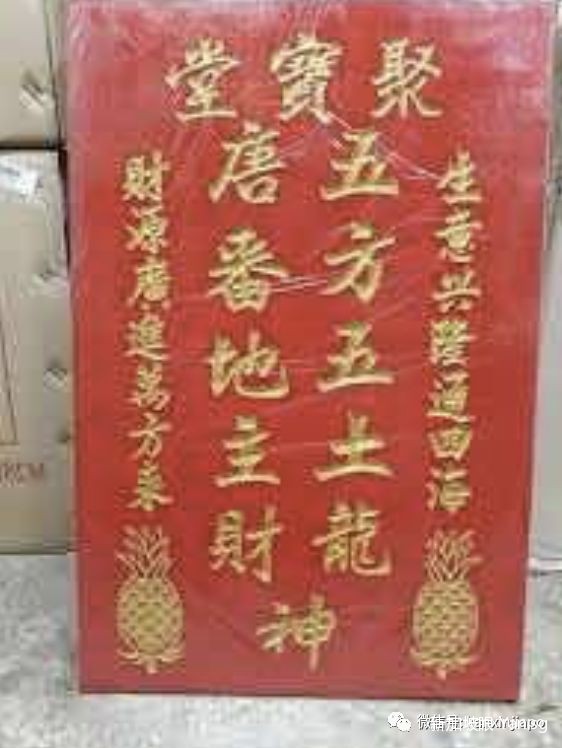 聚寶堂
生意興隆通四海
五方五土龍
唐番地主財
神
財源廣進萬方來